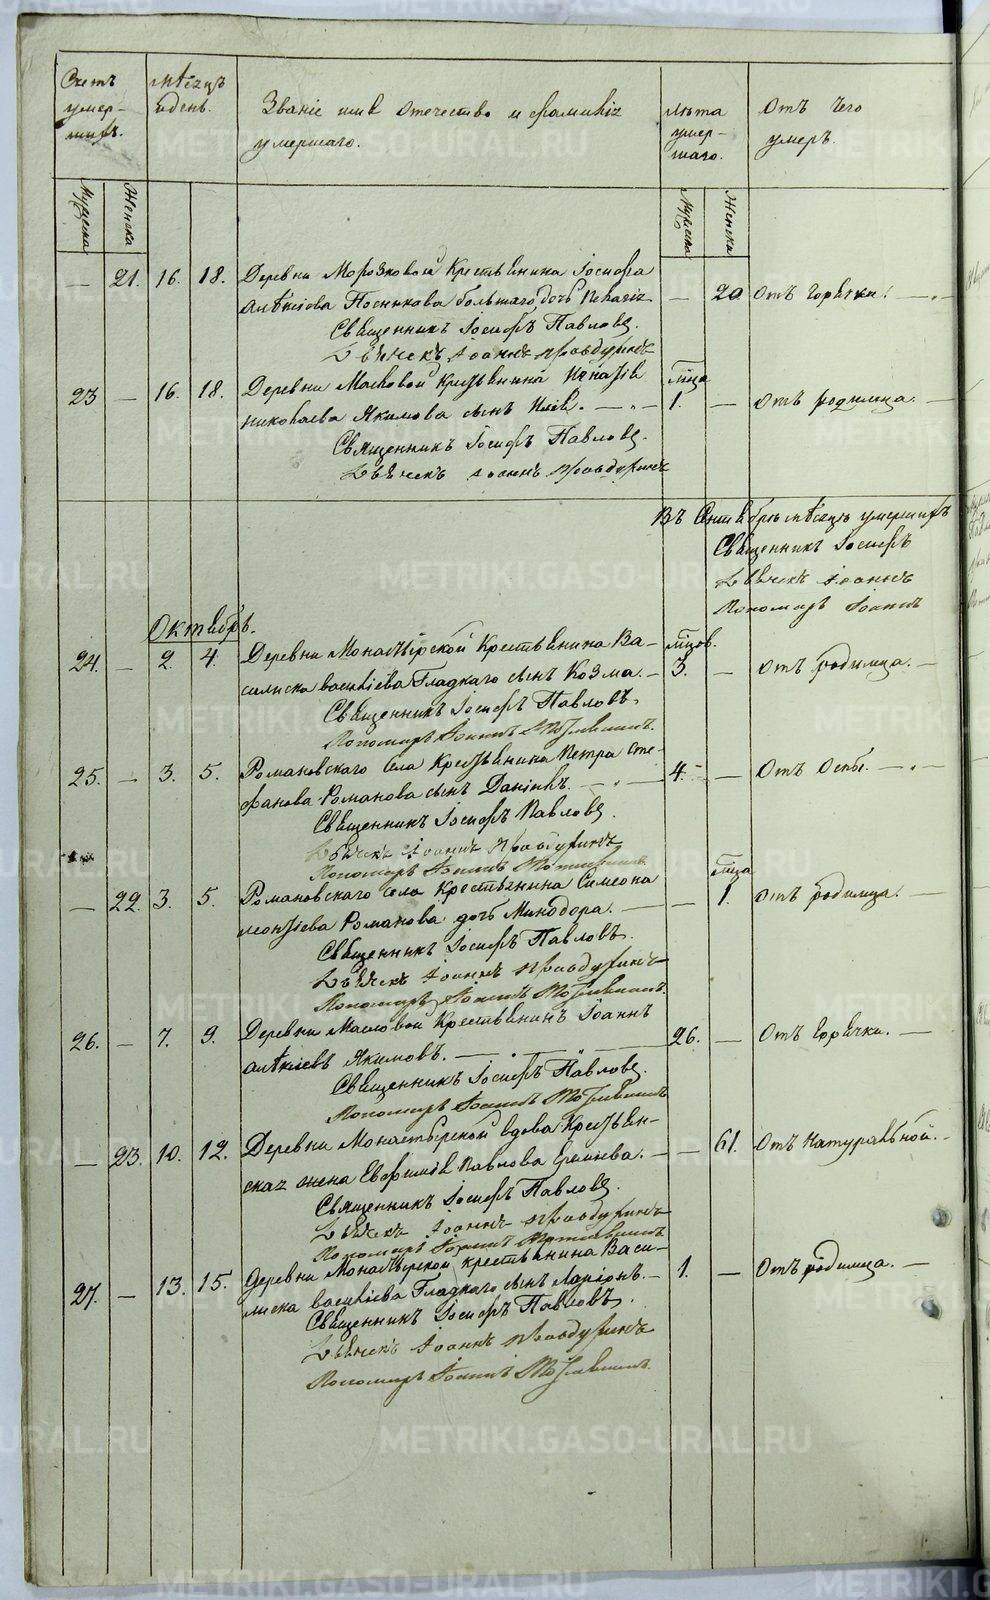 Счетъ умер- шихъ.
мѣсяцъ и день.
Званіе имя отечество и фамилія умершаго.
лѣта умер- шаго.
отъ чего умеръ.
Мужеска
Женска
Мужеска
Женска
— 21. 16. 18. Деревни Морозковой Крестьянина Іосифа
алѣксіева Посникова большаго дочь Пелагія — 20 отъ горячки.
Священникъ Іосифъ Павловъ.
Дьячекъ Іоаннъ
23 — 16. 18. Деревни Масловой Крестьянина Игнатія мѣсяца
николаева Якимова сынъ Іаковъ. — 1. — отъ родимца. —
Священникъ Іосифъ Павловъ.
Дьячекъ Іоаннъ
Въ Сентябрѣ мѣсяцѣ умершихъ
Священникъ Іосифъ
Дьячекъ Іоаннъ
Пономарь Іоаннъ
Октябрь.
24. — 2. 4. Деревни Монастырской Крестьянина Ва- мѣсяцов.
силиска василіева Гладкаго сынъ Козма. — 3. — отъ родимца. —
Священникъ Іосифъ Павловъ.
Пономарь Іоаннъ
25. — 3. 5. Романовскаго села Крестьянина Петра Сте-
фанова Романова сынъ Даніилъ. — 4. — Отъ Оспы. —
Священникъ Іосифъ Павловъ.
Дьячекъ Іоаннъ
Пономарь Іоаннъ
— 22. 3. 5. Романовскаго села Крестьянина Симеона мѣсяца
леонтіева Романова дочь Минодора. — — 1. отъ родимца. —
Священникъ Іосифъ Павловъ.
Дьячекъ Іоаннъ
Пономарь Іоаннъ
26. — 7. 9. Деревни Масловой Крестьянинъ Іоаннъ
алѣксіевъ Якимовъ. — 26. — Отъ Горячки. —
Священникъ Іосифъ Павловъ.
Пономарь Іоаннъ
— 23. 10. 12. Деревни Монастырской вдова Крестьян-
ская жена Евфимія Павлова Еремѣева. — — 61. Отъ Натуральной. —
Священникъ Іосифъ Павловъ.
Дьячекъ Іоаннъ
Пономарь Іоаннъ
27. — 13. 15. Деревни Монастырской крестьянина Васи-
лиска василіева Гладкаго сынъ Ларіонъ. — 1. — Отъ родимца. —
Священникъ Іосифъ Павловъ.
Дьячекъ Іоаннъ
Пономарь Іоаннъ
METRIKI.GASO-URAL.RU